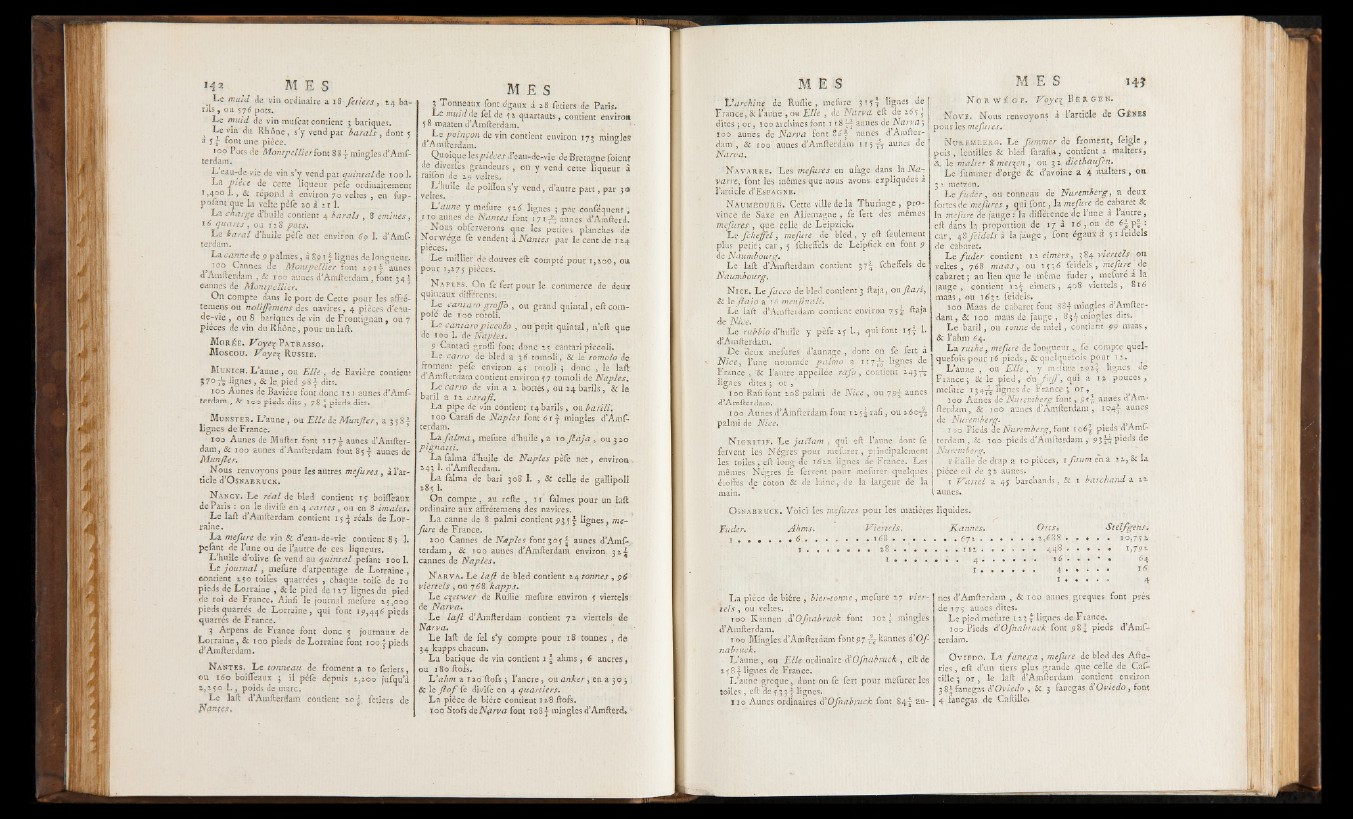 142 MES
Le muid de vin ordinaire a 18 setiers, 24 ba-
rils, ou 576 pots.
Le muid de vin muscat contient 3 bariques.
Le vin du Rhône, s'y vend par barals, dont 5
à 5 ½ font une pièce.
100 Pots de Montpellier font 88 mingles d'Amf-
terdam.
L'eau-de-vie de vin s'y vend par quintal de 100 l.
La pièce de cette liqueur pèse ordinairement
1,400 l., & répond à environ 70 veltes, en sup-
posant que la velte pèse 20 à 21 l.
La charge d'huile contient 4 barals, 8 emines,
16 quarts, ou 128 pots.
Le baral d'huile pèse net environ 69 l. d'Amf-
terdam.
La canne de 9 palmes, a 891 lignes de longueur.
100 Cannes de Montpellier font 291 aunes
d'Amsterdam, & 100 aunes d'Amsterdam, font 34
cannes de Montpellier.
On compte dans le port de Cette pour les affré-
temens ou nolissemens des navires, 4 pièces d'eau-
de-vie, ou 8 bariques de vin de Frontignan, ou 7
pièces de vin du Rhône, pour un last.
MORÉE. Voyez PATRASSO.
MOSCOU. Voyez RUSSIE.
MUNICH. L'aune, ou Elle, de Bavière contient
370 lignes, & le pied 98 dits.
100 Aunes de Bavière font donc 121 aunes d'Amf-
terdam, & 100 pieds dits, 78 pieds dits.
MUNSTER. L'aune, ou Elle de Munster, a 358
lignes de France.
100 Aunes de Muster font 117 aunes d'Amster-
dam, & 100 aunes d'Amsterdam font 85 aunes de
Munster.
Nous renvoyons pour les autres mesures, à l'ar-
ticle d'OSNABRUCK.
NANCY. Le réal de bled contient 15 boisseaux
de Paris : on le divise en 4 cartes, ou en 8 imales.
Le last d'Amsterdam contient 15 réals de Lor-
raine.
La mesure de vin & d'eau-de-vie contient 85 l.
pesant de l'une ou de l'autre de ces liqueurs.
L'huile d'olive se vend au quintal pesant 100 l.
Le journal, mesure d'arpentage de Lorraine,
contient 250 toises quarrées, chaque toise de 10
pieds de Lorraine, & le pied de 127 lignes du pied
de roi de France. Ainsi le journal mesure 25,000
pieds quarrés de Lorraine, qui font 19,446 pieds
quarrés de France.
3 Arpens de France font donc 5 journaux de
Lorraine, & 100 pieds de Lorraine font 100 pieds
d'Amsterdam.
NANTES. Le tonneau de froment a 10 setiers,
ou 160 boisseaux ; il pèse depuis 2,200 jusqu'à
2,250 l., poids de marc.
Le last d'Amsterdam contient 20 setiers de
Nantes.
MES
Tonneaux sont égaux à 28 setiers de Paris.
Le muid de sel de 52 quartauts, contient environ
58 maaten d'Amsterdam.
Le poinçon de vin contient environ 173 mingles
d'Amsterdam.
Quoique les pièces d'eau-de-vie de Bretagne soient
de diverses grandeurs, on y vend cette liqueur à
raison de 29 veltes.
L'huile de poisson s'y vend, d'autre part, par 30
veltes.
L'aune y mesure 526 lignes ; par conséquent,
110 aunes de Nantes font 171 aunes d'Amsterd.
Nous observerons que les petites planches de
Norwége se vendent à Nantes par le cent de 124
pièces.
Le millier de douves est compté pour 1,200, ou
pour 1,275 pièces.
NAPLES. On se sert pour le commerce de deux
quintaux différens.
Le cantaro grosso, ou grand quintal, est com-
posé de 100 rotoli.
Le cantaro piccolo, ou petit quintal, n'est que
de 100 l. de Naples.
9 Cantari grossi font donc 25 cantari piccoli.
Le carro de bled a 36 tomoli, & le tomolo de
froment pèse environ 45 rotoli ; donc, le last
d'Amsterdam contient environ 57 tomoli de Naples.
Le carro de vin a 2 bottes, ou 24 barils, & le
baril a 12 carafi.
La pipe de vin contient 14 barils, ou barili.
100 Carafi de Naples font 61 mingles d'Amf-
terdam.
La salma, mesure d'huile, a 10 staja, ou 320
pignatti.
La salma d'huile de Naples pèse net, environ
243 l. d'Amsterdam.
La salma de bari 308 l., & celle de gallipoli
285 l.
On compte, au reste, 11 salmes pour un last
ordinaire aux affrétemens des navires.
La canne de 8 palmi contient 935 lignes, me-
sure de France.
100 Cannes de Naples font 305 aunes d'Amf-
terdam, & 100 aunes d'Amsterdam environ 32
cannes de Naples.
NARVA. Le last de bled contient 24 tonnes, 96
viertels, ou 768 kapps.
Le czetwer de Russie mesure environ 5 viertels
de Narva.
Le last d'Amsterdam contient 72 viertels de
Narva.
Le last de sel s'y compte pour 18 tonnes, de
34 kapps chacun.
La barique de vin contient 1 ahms, 6 ancres,
ou 180 stofs.
L'ahm a 120 stofs ; l'ancre, ou anker, en a 30 ;
& le stof se divise en 4 quartiers.
La pièce de bière contient 128 stofs.
100 Stofs de Narva font 108 mingles d'Amsterd.
MES
L'archine de Russie, mesure 315 lignes de
France, & l'aune, ou Elle, de Narva est de 265
dites ; or, 100 archines font 118 aunes de Narva ;
100 aunes de Narva font 86 aunes d'Amster-
dam, & 100 aunes d'Amsterdam 115 aunes de
Narva.
NAVARRE. Les mesures en usage dans la Na-
varre, sont les mêmes que nous avons expliquées à
l'article d'ESPAGNE.
NAUMBOURG. Cette ville de la Thuringe, pro-
vince de Saxe en Allemagne, se sert des mêmes
mesures, que celle de Leipzick.
Le scheffel, mesure de bled, y est seulement
plus petit ; car, 5 scheffels de Leipsick en font 9
de Naumbourg.
Le last d'Amsterdam contient 37 scheffels de
Naumbourg.
NICE. Le sacco de bled contient 3 staja, ou stari,
& le staio a 16 mensurali.
Le last d'Amsterdam contient environ 75 staja
de Nice.
Le rubbio d'huile y pèse 25 l., qui font 15 l.
d'Amsterdam.
De deux mesures d'aunage, dont on se sert à
Nice, l'une nommée palmo a 117 lignes de
France, & l'autre appellée raso, contient 243
lignes dites ; or,
100 Rasi font 208 palmi de Nice, ou 79 aunes
d'Amsterdam.
100 Aunes d'Amsterdam font 125 rasi, ou 260
palmi de Nice.
NIGRITIE. Le jactam, qui est l'aune dont se
servent les Nègres pour mesurer, principalement
les toiles, est long de 1622 lignes de France. Les
mêmes Nègres se servent pour mesurer quelques
étoffes de coton & de laine, de la largeur de la
main.
MES 143
NORWÉGE. Voyez BERGEN.
NOVE. Nous renvoyons à l'article de GÊNES
pour les mesures.
NUREMBERG. Le summer de froment, seigle,
pois, lentilles & bled sarasin, contient 2 malters,
& le malter 8 metzen, ou 32 diethausen.
Le summer d'orge & d'avoine a 4 malters, ou
32 metzen.
Le fuder, ou tonneau de Nuremberg, a deux
sortes de mesures, qui sont, la mesure de cabaret &
la mesure de jauge : la différence de l'une à l'autre,
est dans la proportion de 17 à 16, ou de 6 p° :
car, 48 seidels à la jauge, sont égaux à 51 seidels
de cabaret.
Le fuder contient 12 eimers, 384 viertels ou
veltes, 768 maas, ou 1536 seidels, mesure de
cabaret ; au lieu que le même fuder, mesuré à la
jauge, contient 12 eimers, 408 viertels, 816
maas, ou 1632 seidels.
100 Maas de cabaret font 88 mingles d'Amster-
dam, & 100 maas de jauge, 83 mingles dits.
Le baril, ou tonne de miel, contient 90 maas,
& l'ahm 64.
La ruthe, mesure de longueur, se compte quel-
quefois pour 16 pieds, & quelquefois pour 12.
L'aune, ou Elle, y mesure 292 lignes de
France ; & le pied, ou fuss, qui a 12 pouces,
mesure 134 lignes de France ; or,
100 Aunes de Nuremberg font 95 aunes d'Am-
sterdam, & 100 aunes d'Amsterdam, 104 aunes
de Nuremberg.
100 Pieds de Nuremberg, font 106 pieds d'Amf-
terdam, & 100 pieds d'Amsterdam, 93 pieds de
Nuremberg.
1 Balle de drap a 10 pièces, 1 saum en a 22, & la
pièce est de 32 aunes.
1 Vartel a 45 barchands, & 1 barchand a 22
aunes.
OSNABRUCK. Voici les mesures pour les matières liquides.
Fuder. Ahms. Viertels. Kannes. Orts. Stelfgens.
1 . . . . . . 6 . . . . . . 168 . . . . . . 672 . . . . . . 2,688 . . . . . 10,752
1 . . . . . . 28 . . . . . . 112 . . . . . . 448 . . . . . 1,792
1 . . . . . . 4 . . . . . . 16 . . . . . 64
1 . . . . . . 4 . . . . . 16
1 . . . . . 4
La pièce de bière, bier-tonne, mesure 27 vier-
tels, ou veltes.
100 Kannen d'Osnabruck font 101 mingles
d'Amsterdam.
100 Mingles d'Amsterdam font 97 kannes d'Of-
nabruck.
L'aune, ou Elle ordinaire d'Osnabruck, est de
258 lignes de France.
L'aune greque, dont on se sert pour mesurer les
toiles, est de 533 lignes.
110 Aunes ordinaires d'Osnabruck font 84 au-
nes d'Amsterdam, & 100 aunes greques font près
de 175 aunes dites.
Le pied mesure 123 lignes de France.
100 Pieds d'Osnabruck font 98 pieds d'Amf-
terdam.
OVIEDO. La fanega, mesure de bled des Astu-
ries, est d'un tiers plus grande que celle de Cas-
tille ; or, le last d'Amsterdam contient environ
38 fanegas d'Oviedo, & 3 fanegas d'Oviedo, font
4 fanegas de Castille.